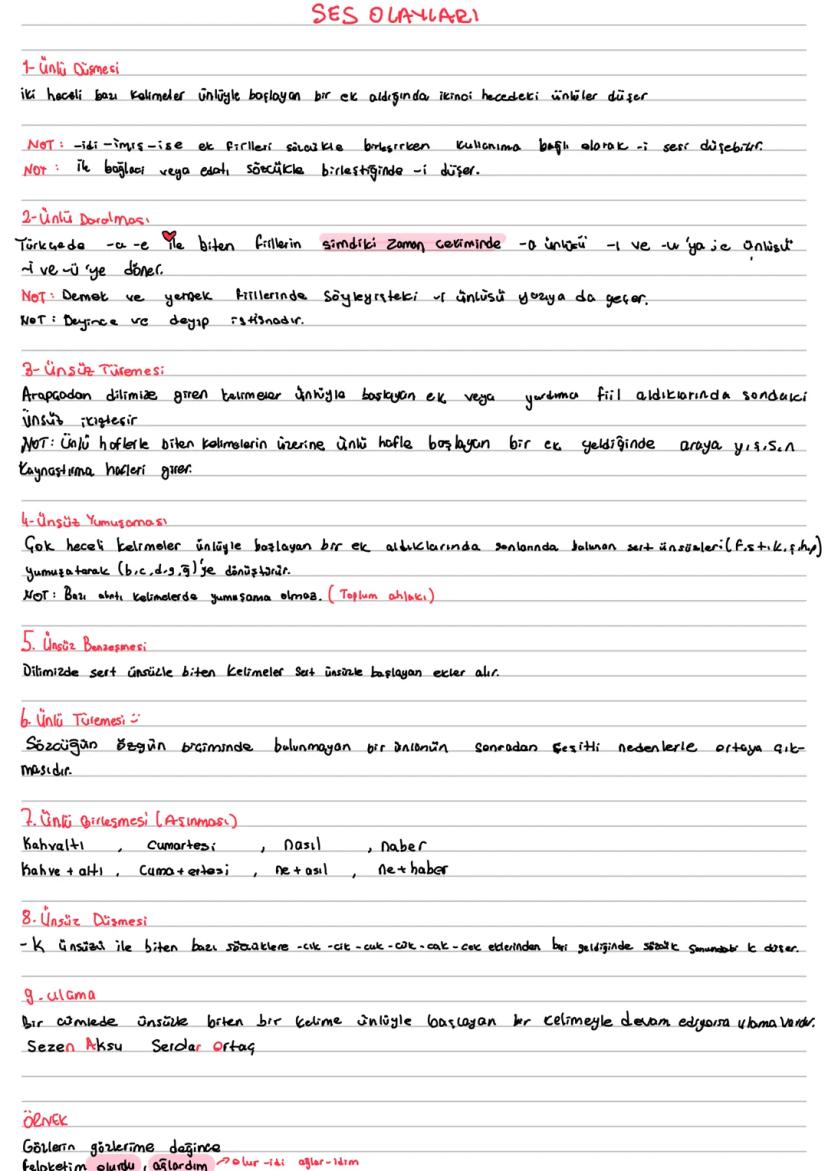 SES OLAYLARI
1- Ünlü Düşmesi
iki heceli bazı kelimeler ünlüyle başlayan bir ek aldığında ikinci hecedeki ünlüler düşer
NOT: -idi -imiş -ise ek fiilleri sözcükle birleşirken kullanıma bağlı olarak -i sesi düşebilir.
NOT: ile bağlacı veya edatı sözcükle birleştiğinde -i düşer.
2- Ünlü Daralması
Türkçede -a -e ile biten fiillerin şimdiki zaman çekiminde -a ünlüsü -ı ve -u'ya -e ünlüsü
-i ve -ü'ye döner.
NOT: Demek ve yemek fiillerinde söyleyişteki -i ünlüsü yazıya da geçer.
NOT: Deyince ve deyip istisnadır.
3- Ünsüz Türemesi
Arapçadan dilimize giren kelimeler ünlüyle başlayan ek veya yardımcı fiil aldıklarında sondaki
ünsüz ikizleşir
NOT: Ünlü harflerle biten kelimelerin üzerine ünlü harfle başlayan bir ek geldiğinde araya y,ş,s,n
kaynaştırma harfleri girer.
4- Ünsüz Yumuşaması
Çok heceli kelimeler ünlüyle başlayan bir ek aldıklarında sonlarında bulunan sert ünsüzleri (f,s,t,k,ç,h,p)
yumuşatarak (b,c,d,g,ğ)'ye dönüştürür.
NOT: Bazı alıntı kelimelerde yumuşama olmaz. (Toplum ahlakı)
5. Ünsüz Benzeşmesi
Dilimizde sert ünsüzle biten kelimeler sert ünsüzle başlayan ekler alır.
6. Ünlü Türemesi :-
Sözcüğün özgün biçiminde bulunmayan bir ünlünün sonradan çeşitli nedenlerle ortaya çık-
masıdır.
7. Ünlü Birleşmesi (Aşınması)
Kahvaltı , cumartesi , nasıl , naber
Kahve + altı , Cuma + ertesi , ne + asıl , ne + haber
8. Ünsüz Düşmesi
-K ünsüzü ile biten bazı sözcüklere -cık -cik -cuk -cük -cak -cek eklerinden biri geldiğinde sözcük sonundaki k düşer.
9. ulama
Bir cümlede ünsüzle biten bir kelime ünlüyle başlayan bir kelimeyle devam ediyorsa ulama vardır.
Sezen Aksu Serdar Ortaç
ÖRNEK
Gözlerin gözlerime değince
felaketim olurdu, ağlardım → olur-idi ağlar-idim